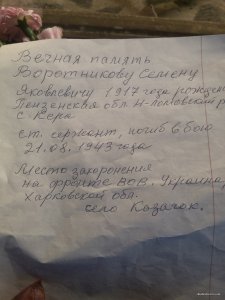 Вечная память
Воротникову Семену
Яковлевичу 1917 года рожден
Пензенская обл. Н-ломовский р
с Кера
ст. сержант, погиб в бою
21.08.1943 года
Место захоронения
на фронте ВОВ. Украина,
Харковской обл.
село Козачок.